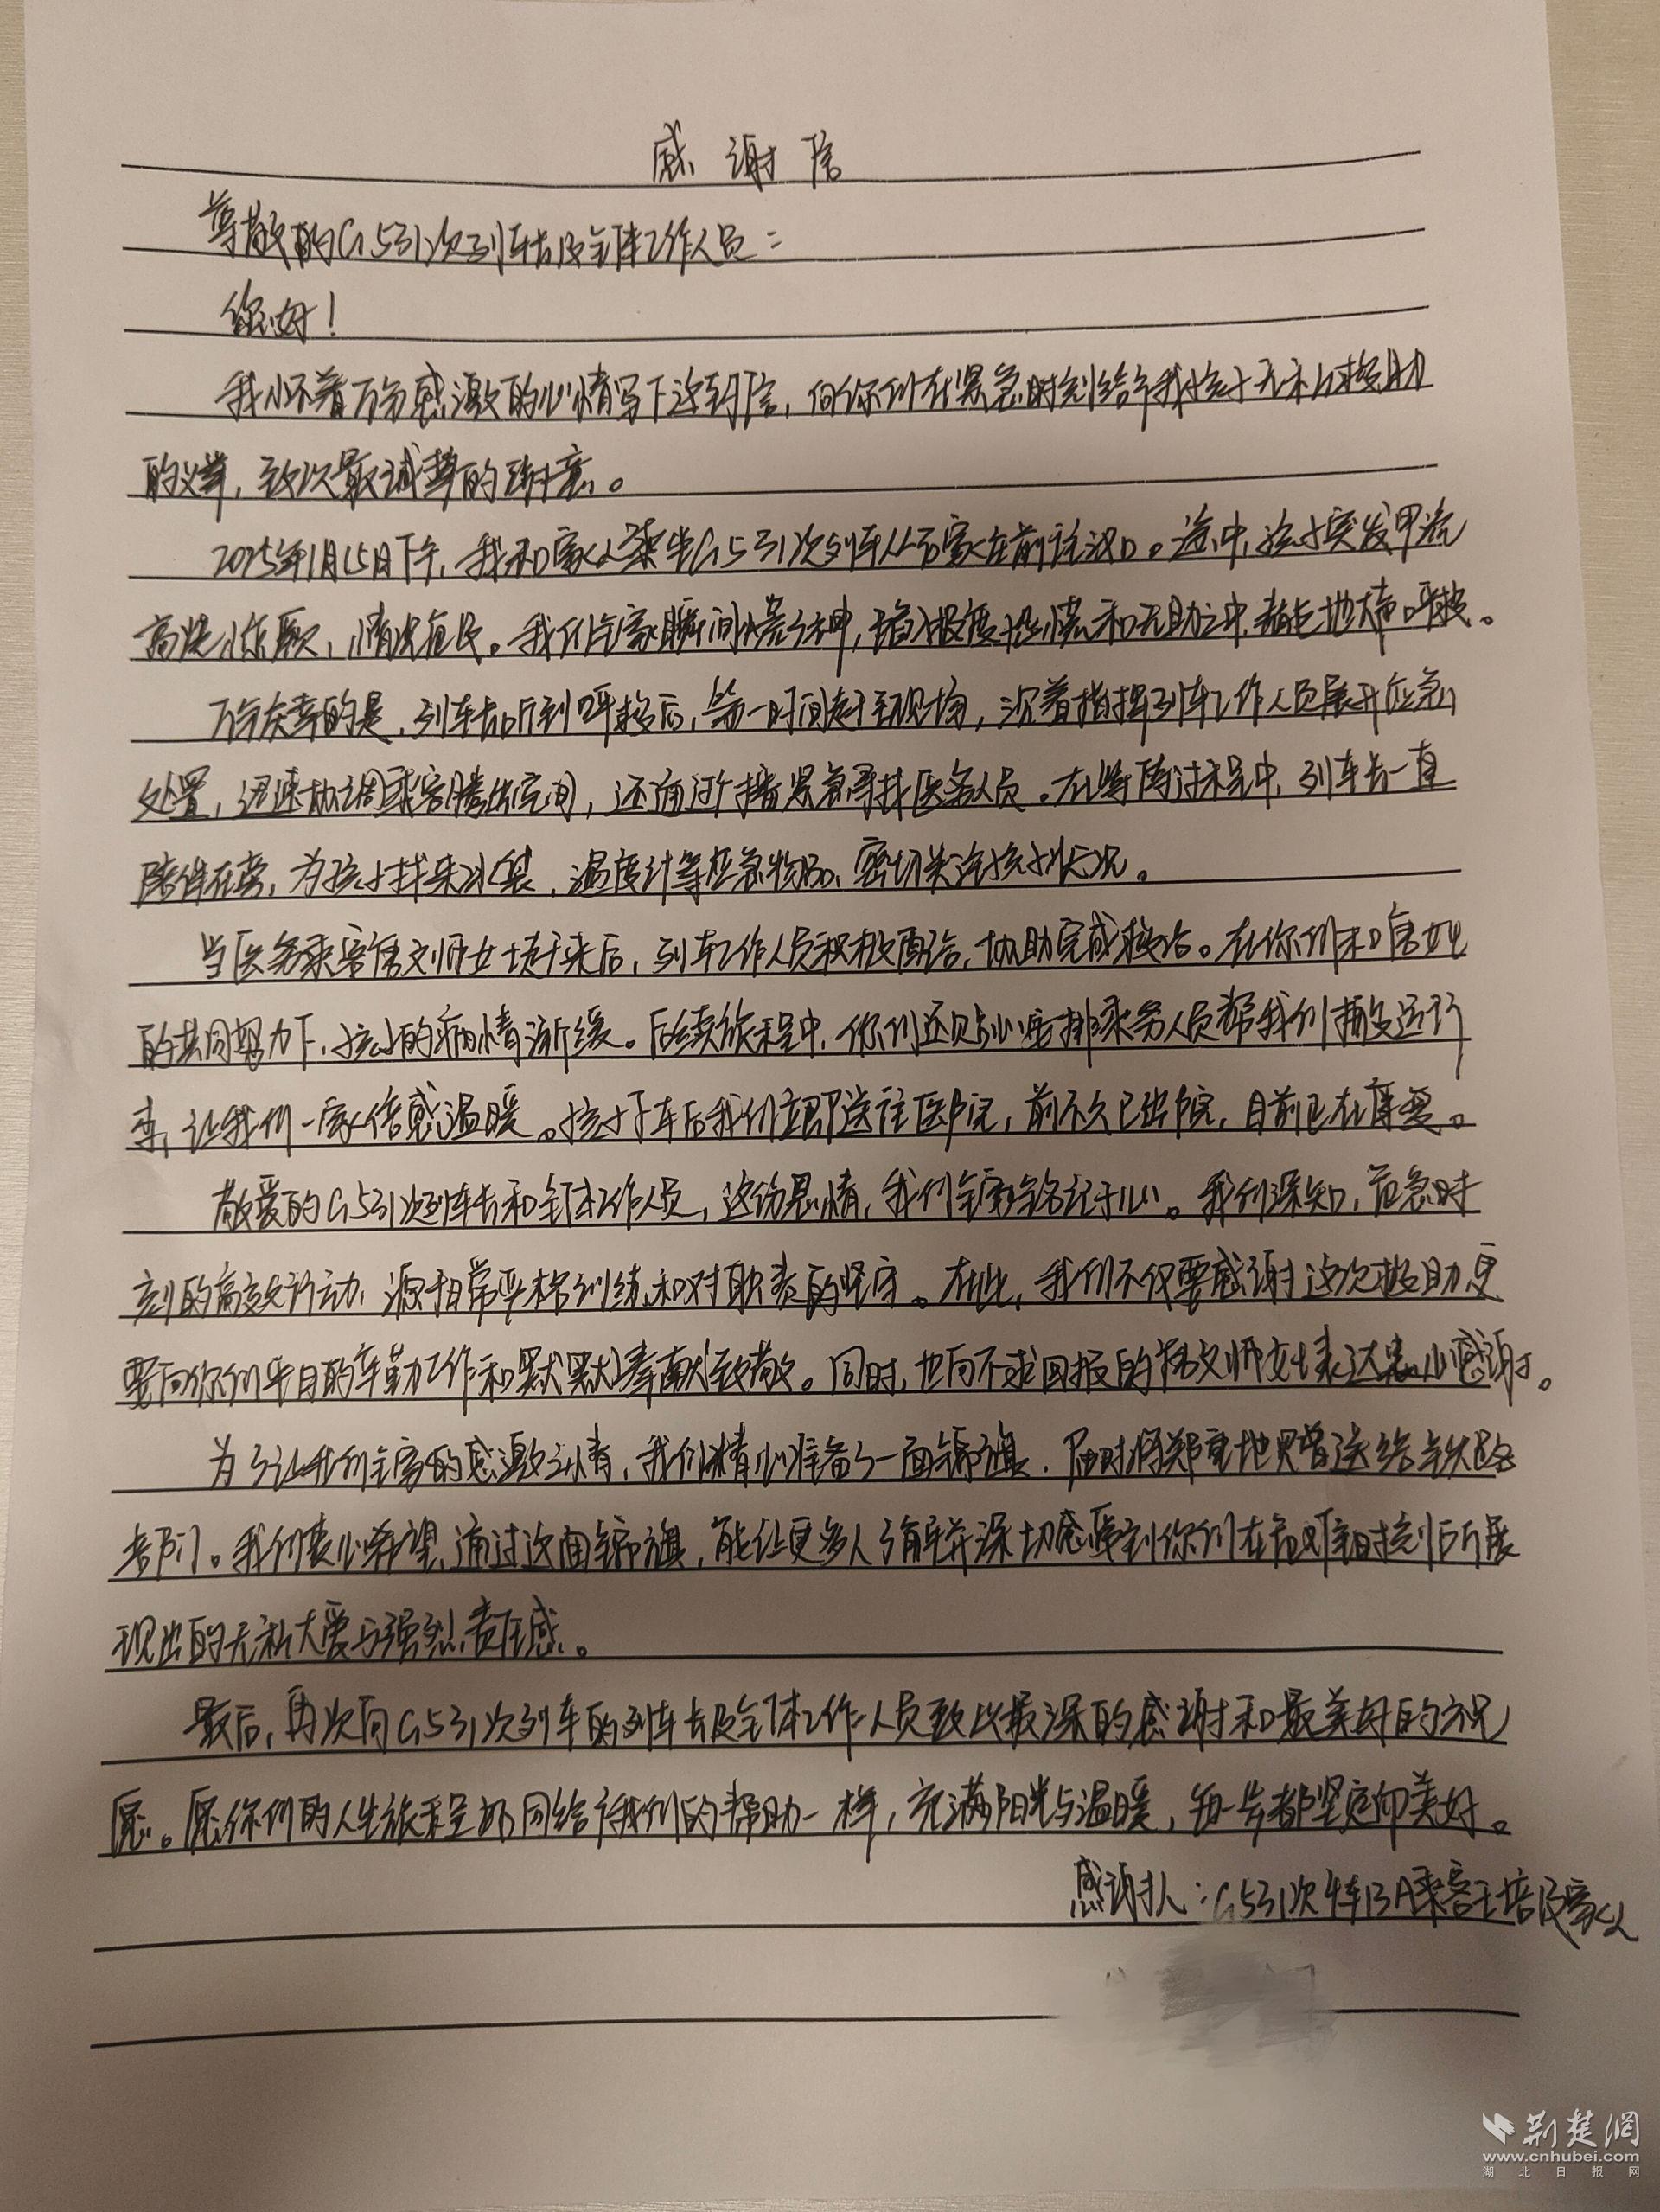 感谢信
尊敬的G531次列车长及全体工作人员：
您好！
我怀着万分感激的心情写下这封信，向你们在紧急时刻给予我孩子无私援助
的义举，致以最诚挚的谢意。
2025年1月15日下午，我和家人乘坐G531次列车从石家庄前往汉口。途中，孩子突发甲流
高烧惊厥，情况危及。我们全家瞬间慌了神，陷入极度恐慌和无助之中，着急地大声呼救。
万分庆幸的是，列车长听到呼救后，第一时间赶至现场，沉着指挥列车工作人员展开应急
处置，迅速协调乘客腾出空间，还通过广播紧急寻找医务人员。在等待过程中，列车长一直
陪伴在旁，为孩子找来冰袋、温度计等应急物品，密切关注孩子状况。
当医务乘客唐文师女士赶来后，列车工作人员积极配合，协助完成救治。在你们和唐女士
的共同努力下，孩子的病情渐缓。后续旅程中，你们还贴心安排乘务人员帮我们搬运行
李，让我们一家倍感温暖。孩子下车后我们立即送往医院，前不久已出院，目前正在康复。
敬爱的G531次列车长和全体工作人员，这份恩情，我们全家铭记于心。我们深知，危急时
刻的高效行动，源于日常严格训练和对职责的坚守。在此，我们不仅要感谢这次救助，更
要向你们平日的辛勤工作和默默奉献致敬。同时，也向不求回报的唐文师女士表达衷心感谢。
为了让我们全家的感激之情，我们精心准备了一面锦旗，届时将郑重地赠送给铁路
部门。我们衷心希望，通过这面锦旗，能让更多人了解并深切感受到你们在危难时刻所展
现出的无私大爱与强烈责任感。
最后，再次向G531次列车的列车长及全体工作人员致以最深的感谢和最美好的祝
愿。愿你们的人生旅程如同给予我们的帮助一样，充满阳光与温暖，每一步都坚定迎美好。
感谢人：G531次4车13A乘客王培及家人
荆楚网
www.cnhubei.com
湖北日报网